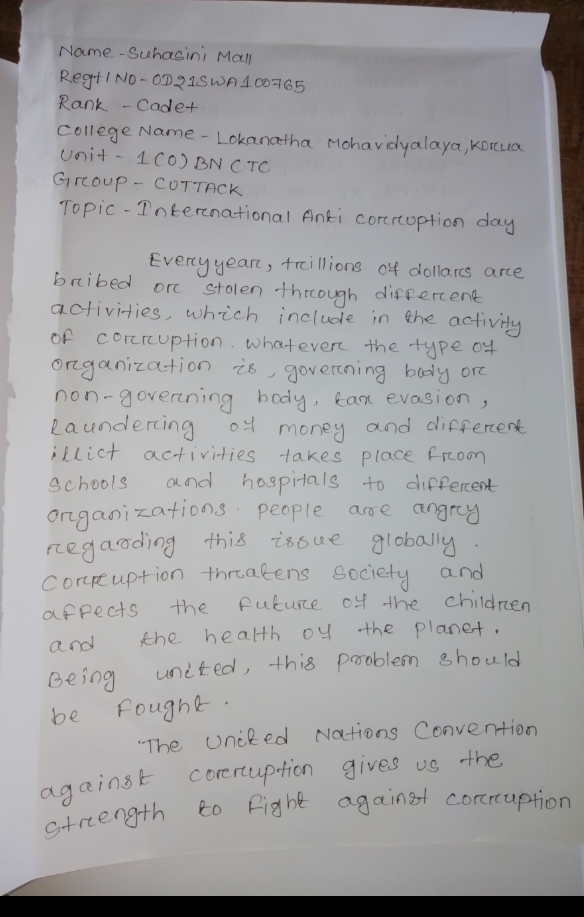 Name - Suhasini Mall
Regtl NO - OD21SWA100765
Rank - Cadet
College Name - Lokanatha Mohavidyalaya, Korua
Unit - 1(O) BN CTC
Group - COTTACK
Topic - International Anti corruption day
Every year, trillions of dollars are
bribed or stolen through different
activities, which include in the activity
of corruption. whatever the type of
organization is, governing body or
non-governing body, tax evasion,
Laundering of money and different
illict activities takes place from
schools and hospitals to different
organizations. people are angry
regarding this issue globally.
Corruption threatens society and
affects the future of the children
and the health of the planet.
Being united, this problem should
be fought.
"The United Nations Convention
against corerruption gives us the
strength to fight against corrruption